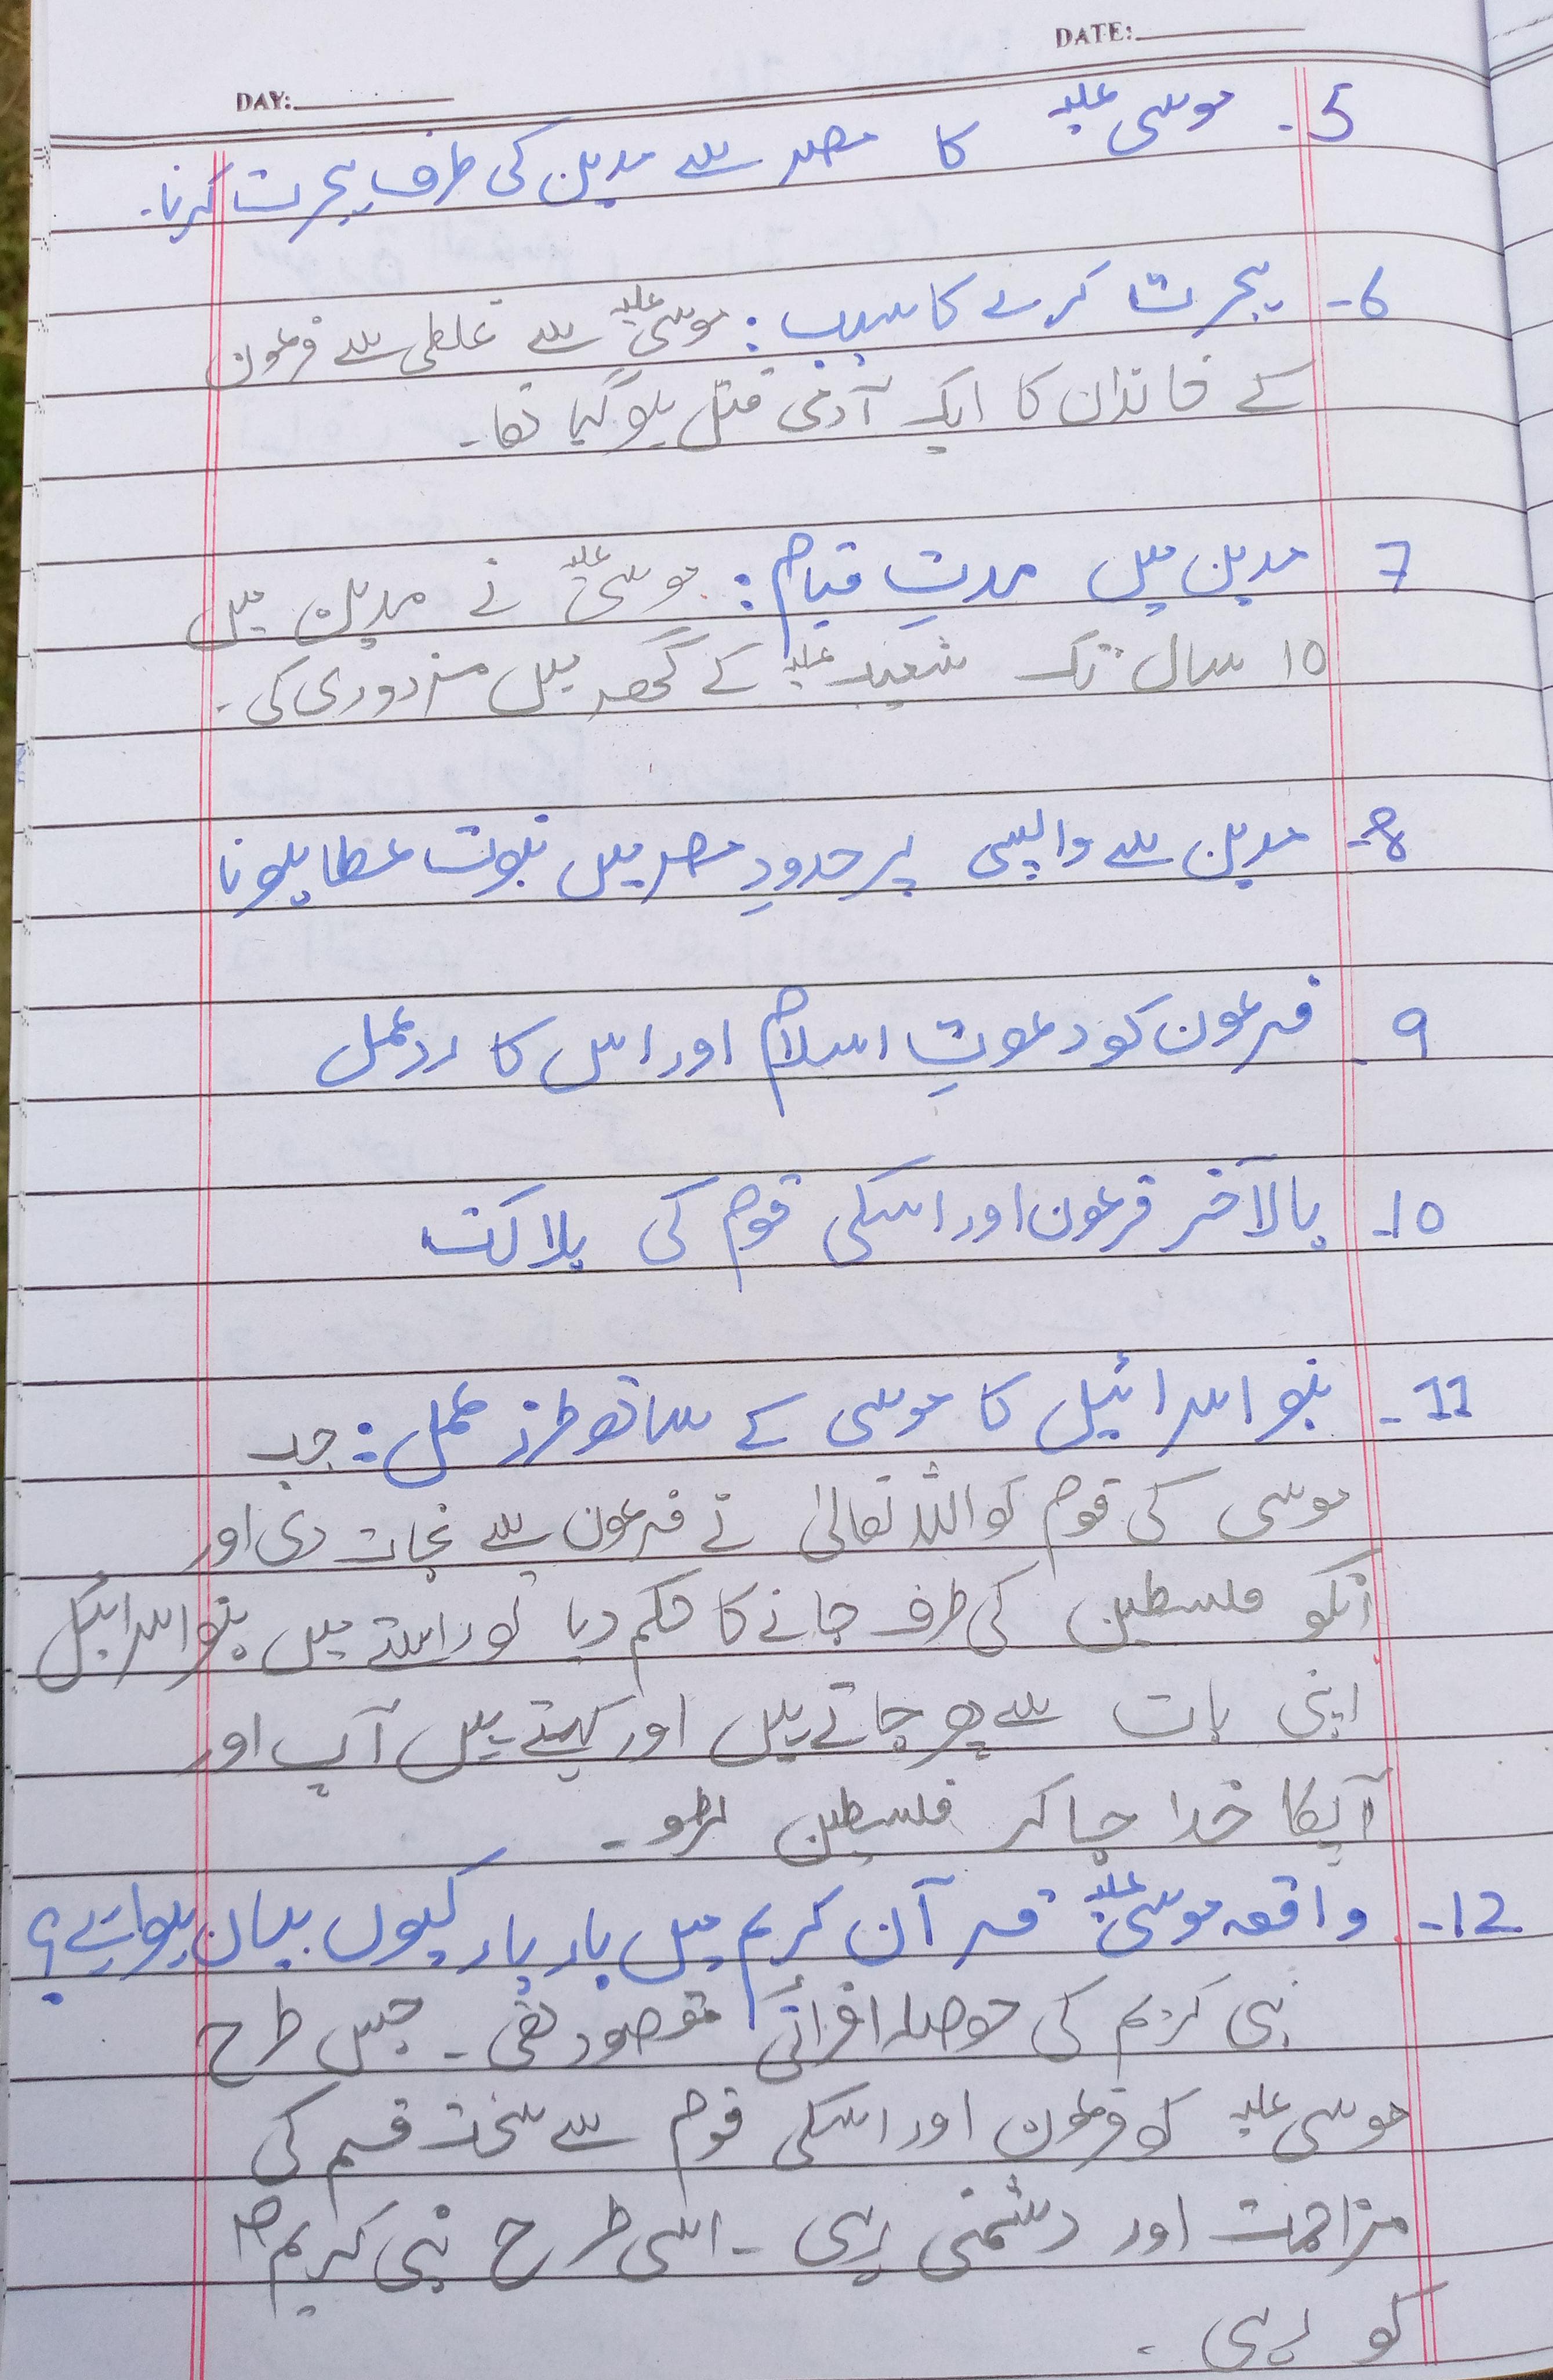 DATE:
DAY:
5. موسی علیہ کا مصر سے مدین کی طرف ہجرت کرنا۔
6- ہجرت کرنے کا سبب: موسیٰ علیہ سے غلطی سے فرعون
کے خاندان کا ایک آدمی قتل ہو گیا تھا۔
7 مدین میں مدتِ قیام: موسیٰ علیہ نے مدین میں
10 سال تک شعیب علیہ کے گھر میں مزدوری کی۔
8- مدین سے واپسی پر حدودِ مصر میں نبوت عطا ہونا
9. فرعون کو دعوتِ اسلام اور اس کا ردعمل
10- بالآخر فرعون اور اسکی قوم کی ہلاکت
11- بنو اسرائیل کا موسی کے ساتھ طرز عمل: جب
موسی کی قوم کو اللہ تعالیٰ نے فرعون سے نجات دی اور
انکو فلسطین کی طرف جانے کا حکم دیا تو راستے میں بنو اسرائیل
اپنی بات سے پھر جاتے ہیں اور کہتے ہیں آپ اور
آپکا خدا جا کر فلسطین لڑو۔
12- واقعہ موسیٰ علیہ قرآن کریم میں بار بار کیوں بیان ہوا ہے؟
نبی کریم کی حوصلہ افزائی مقصود تھی۔ جس طرح
موسی علیہ کو فرعون اور اسکی قوم سے سخت قسم کی
مزاحمت اور دشمنی رہی۔ اسی طرح نبی کریم ﷺ
کو رہی۔